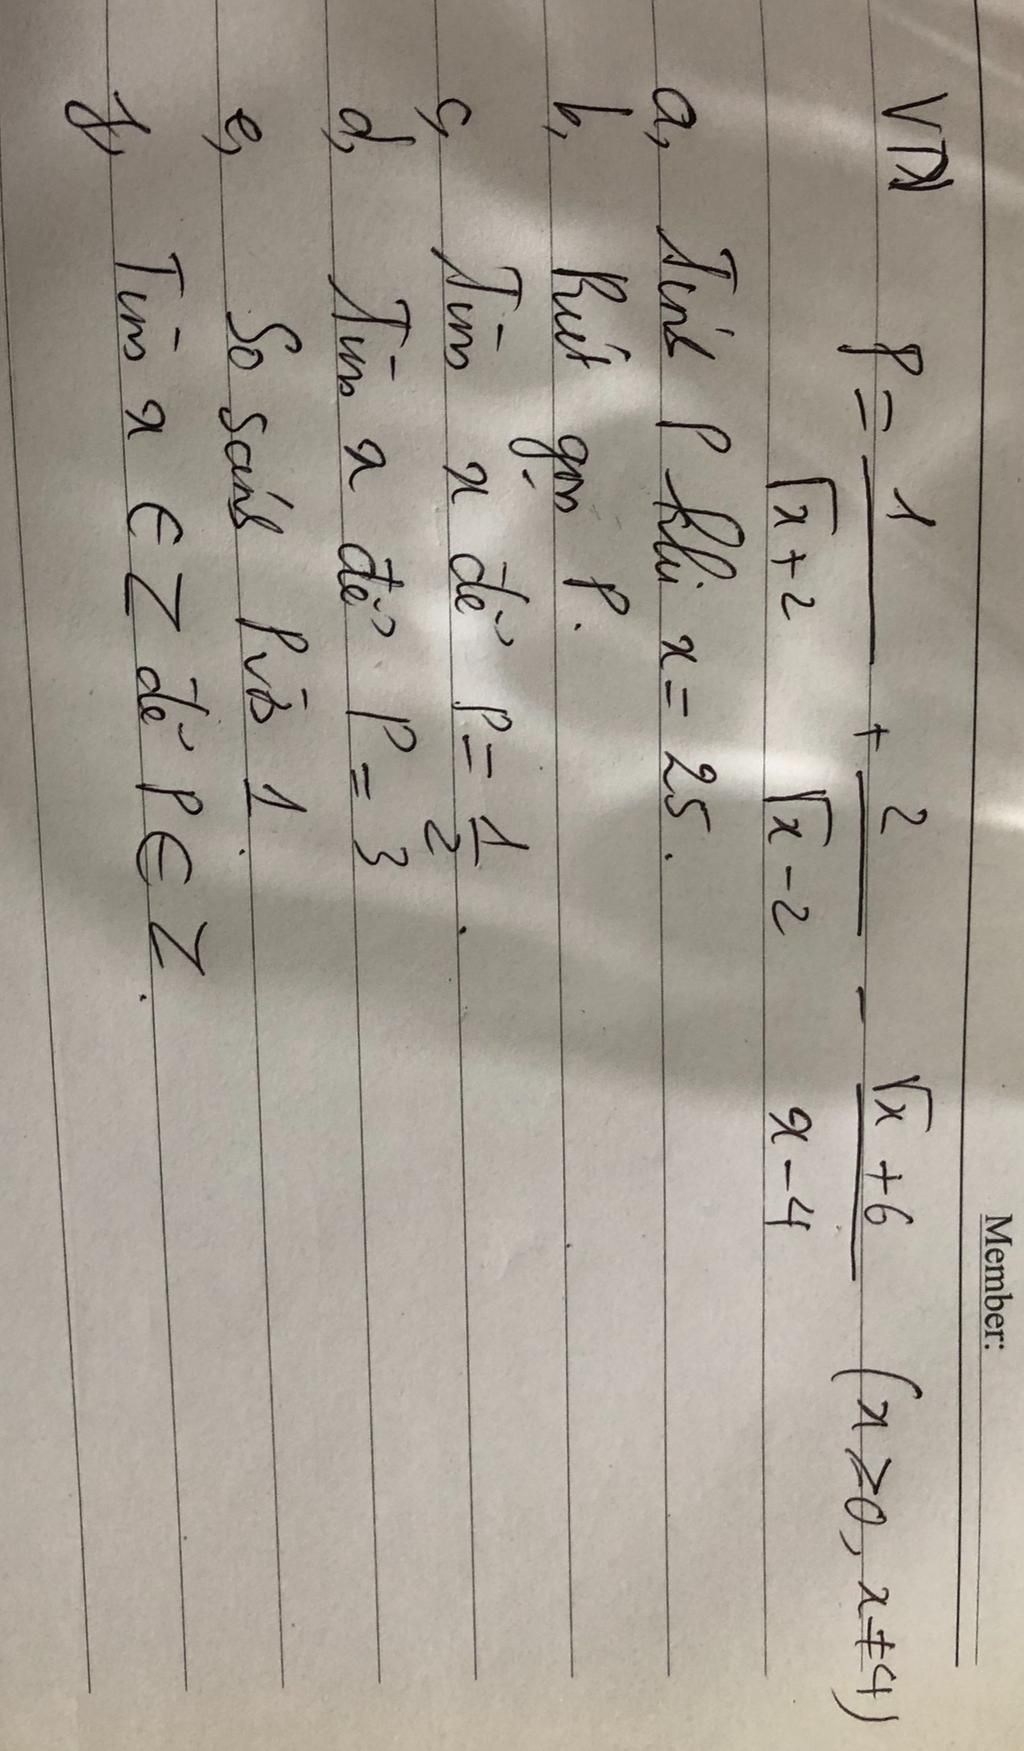 Member:
VD P = 1/(√x + 2) + 2/(√x - 2) - (√x + 6)/(x - 4) (x ≥ 0, x ≠ 4)
a, Tính P khi x = 25.
b, Rút gọn P.
c, Tìm x để P = 1/2.
d, Tìm x để P = 3
e, So sánh P và 1.
f, Tìm x ∈ Z để P ∈ Z.